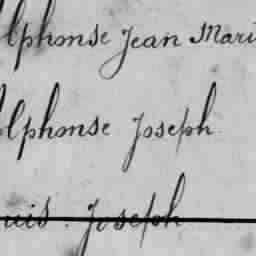 Alphonse Jean Mari
Alphonse Joseph
ouis. Joseph